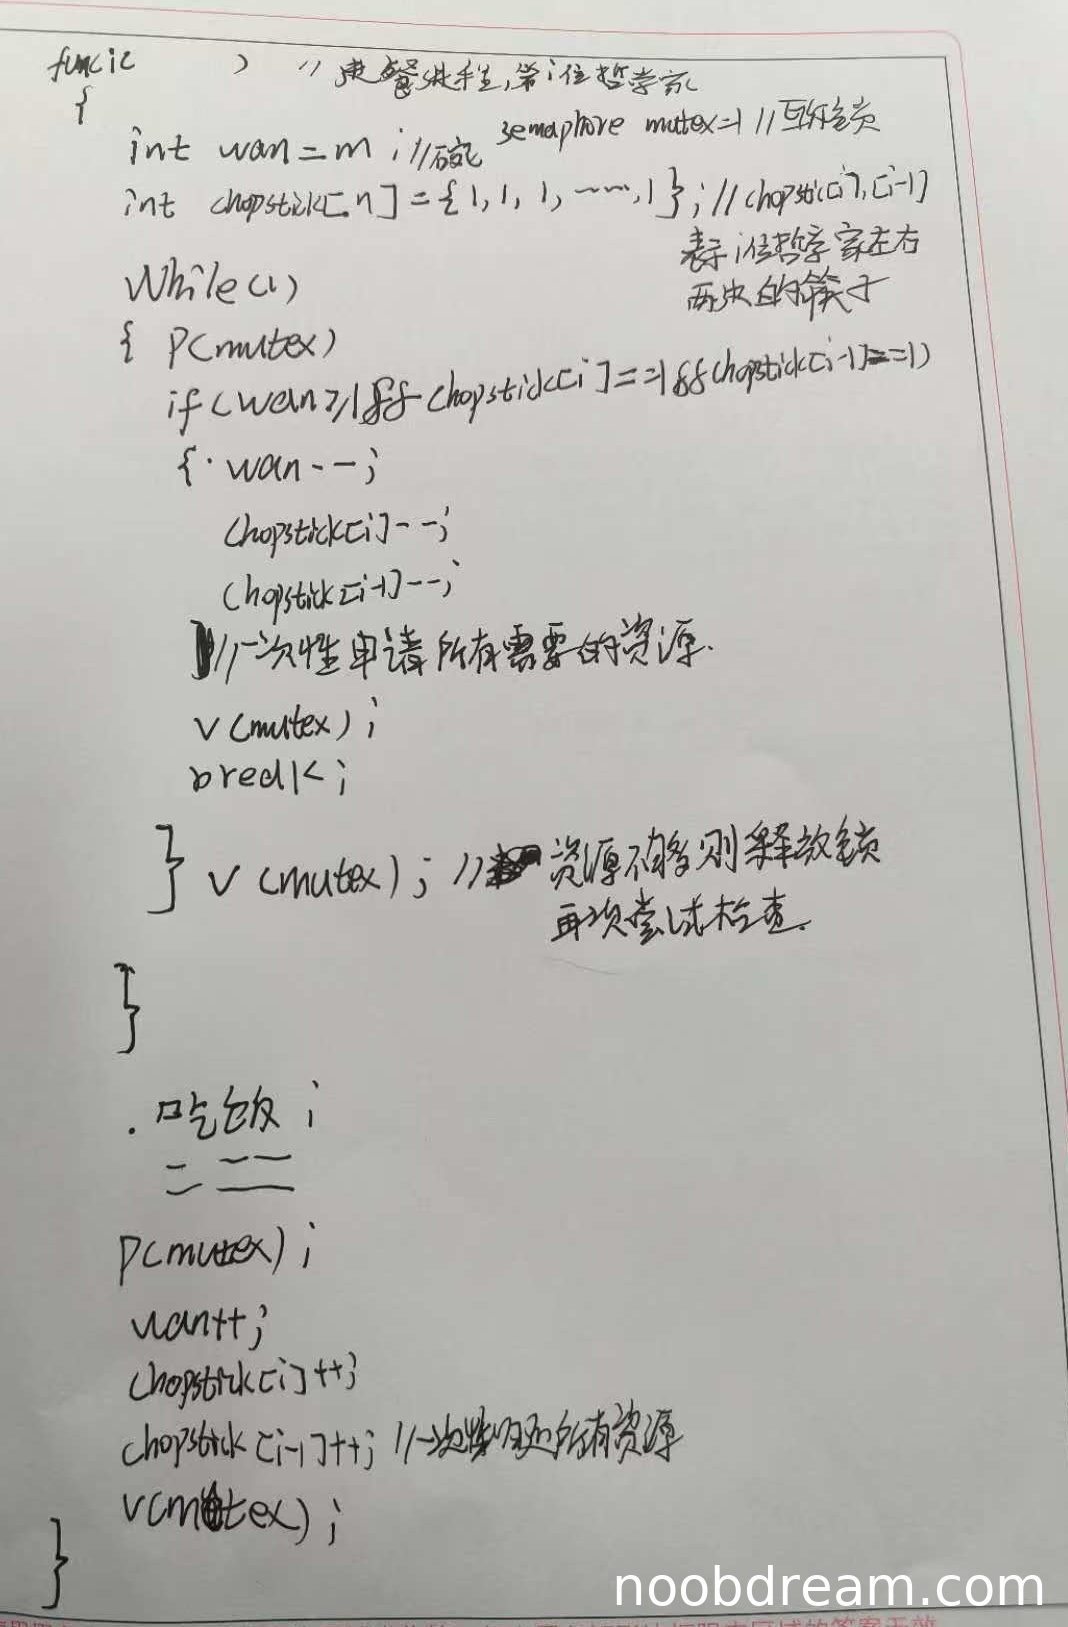 funcic ) // 进餐进程,第i位哲学家
{
int wan=m ; //碗 semaphore mutex=1 //互斥锁
int chopstick[n]={1,1,1,……,1}; //chopstic[i],[i-1]
表示i位哲学家左右
两边的筷子
While(1)
{ P(mutex)
if(wan≥1&&chopstick[i]==1&&chopstick[i-1]==1)
{ wan--;
chopstick[i]--;
chopstick[i-1]--;
//一次性申请所有需要的资源.
V(mutex);
break;
} V(mutex); // 资源不够则释放锁
再次尝试检查.
}
吃饭;
P(mutex);
wan++;
chopstick[i]++;
chopstick[i-1]++; //一次性归还所有资源
V(mutex);
}
noobdream.com